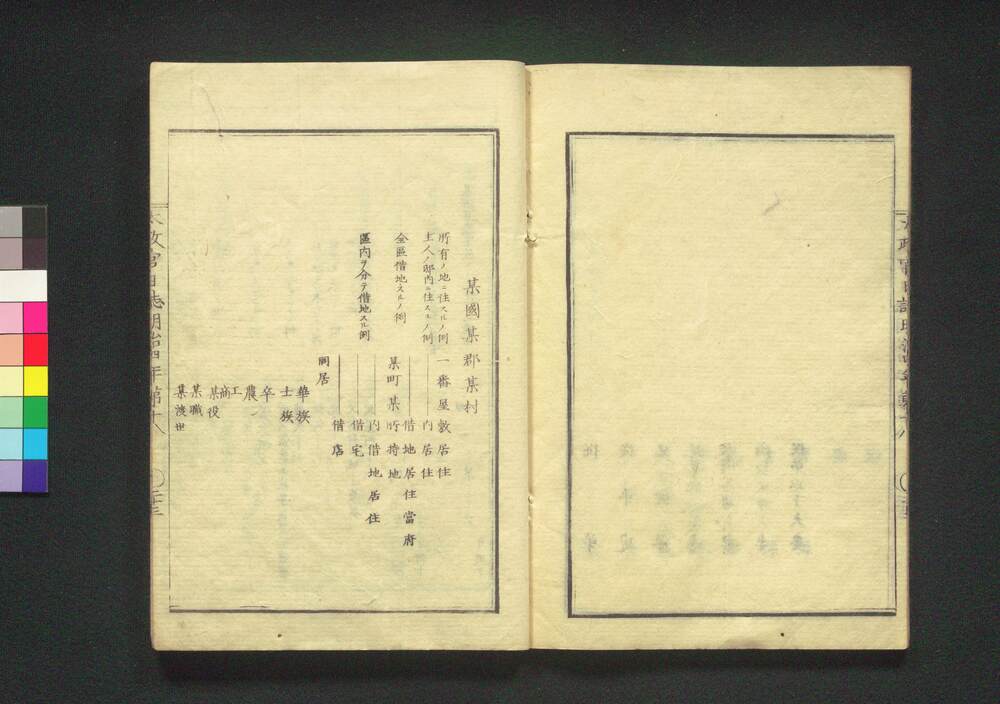 太政官日誌明治四年第十八 〇二十三
某國某郡某村
所有ノ地ニ住スルノ例 一番屋敷居住
主人ノ邸内ニ住スルノ例 内居住
借地居住當府
全區借地スルノ例 某町某所持地
區内ヲ分テ借地スル例 内借地居住
借宅
借店
同居
華族
士族
卒
農
工
商
某役
某職
某渡世